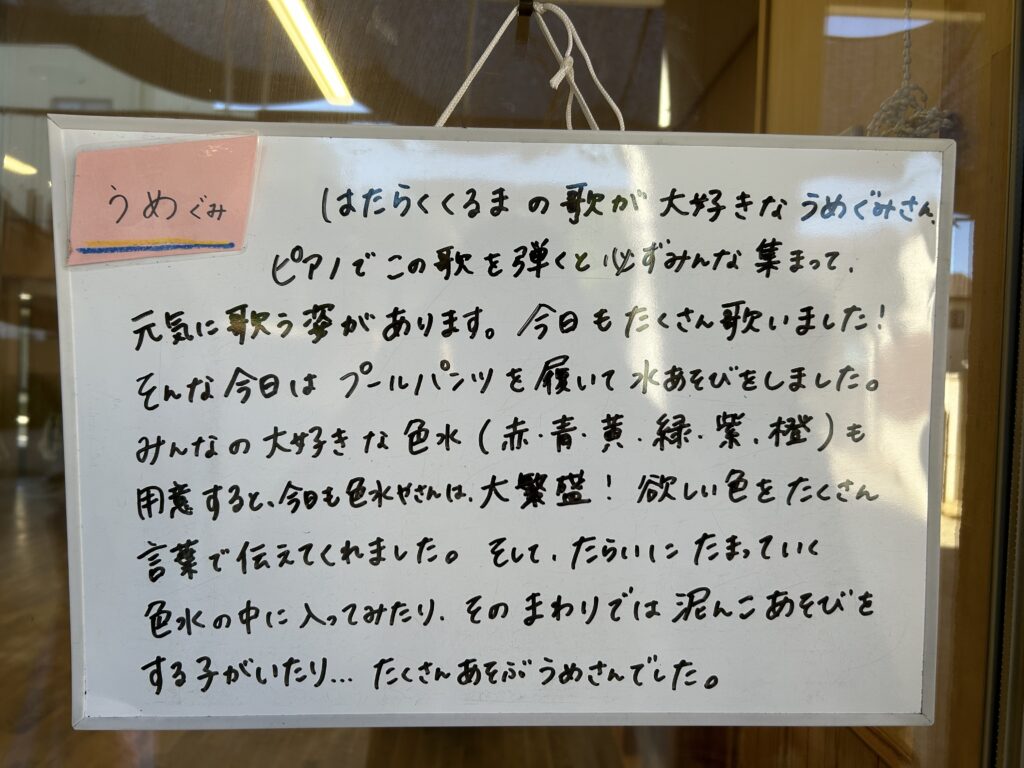 うめぐみ
はたらくくるまの歌が大好きなうめぐみさん、
ピアノでこの歌を弾くと必ずみんな集まって、
元気に歌う姿があります。今日もたくさん歌いました！
そんな今日はプールパンツを履いて水あそびをしました。
みんなの大好きな色水（赤・青・黄・緑・紫・橙）も
用意すると、今日も色水やさんは、大繁盛！欲しい色をたくさん
言葉で伝えてくれました。そして、たらいにたまっていく
色水の中に入ってみたり、そのまわりでは泥んこあそびを
する子がいたり…たくさんあそぶうめさんでした。